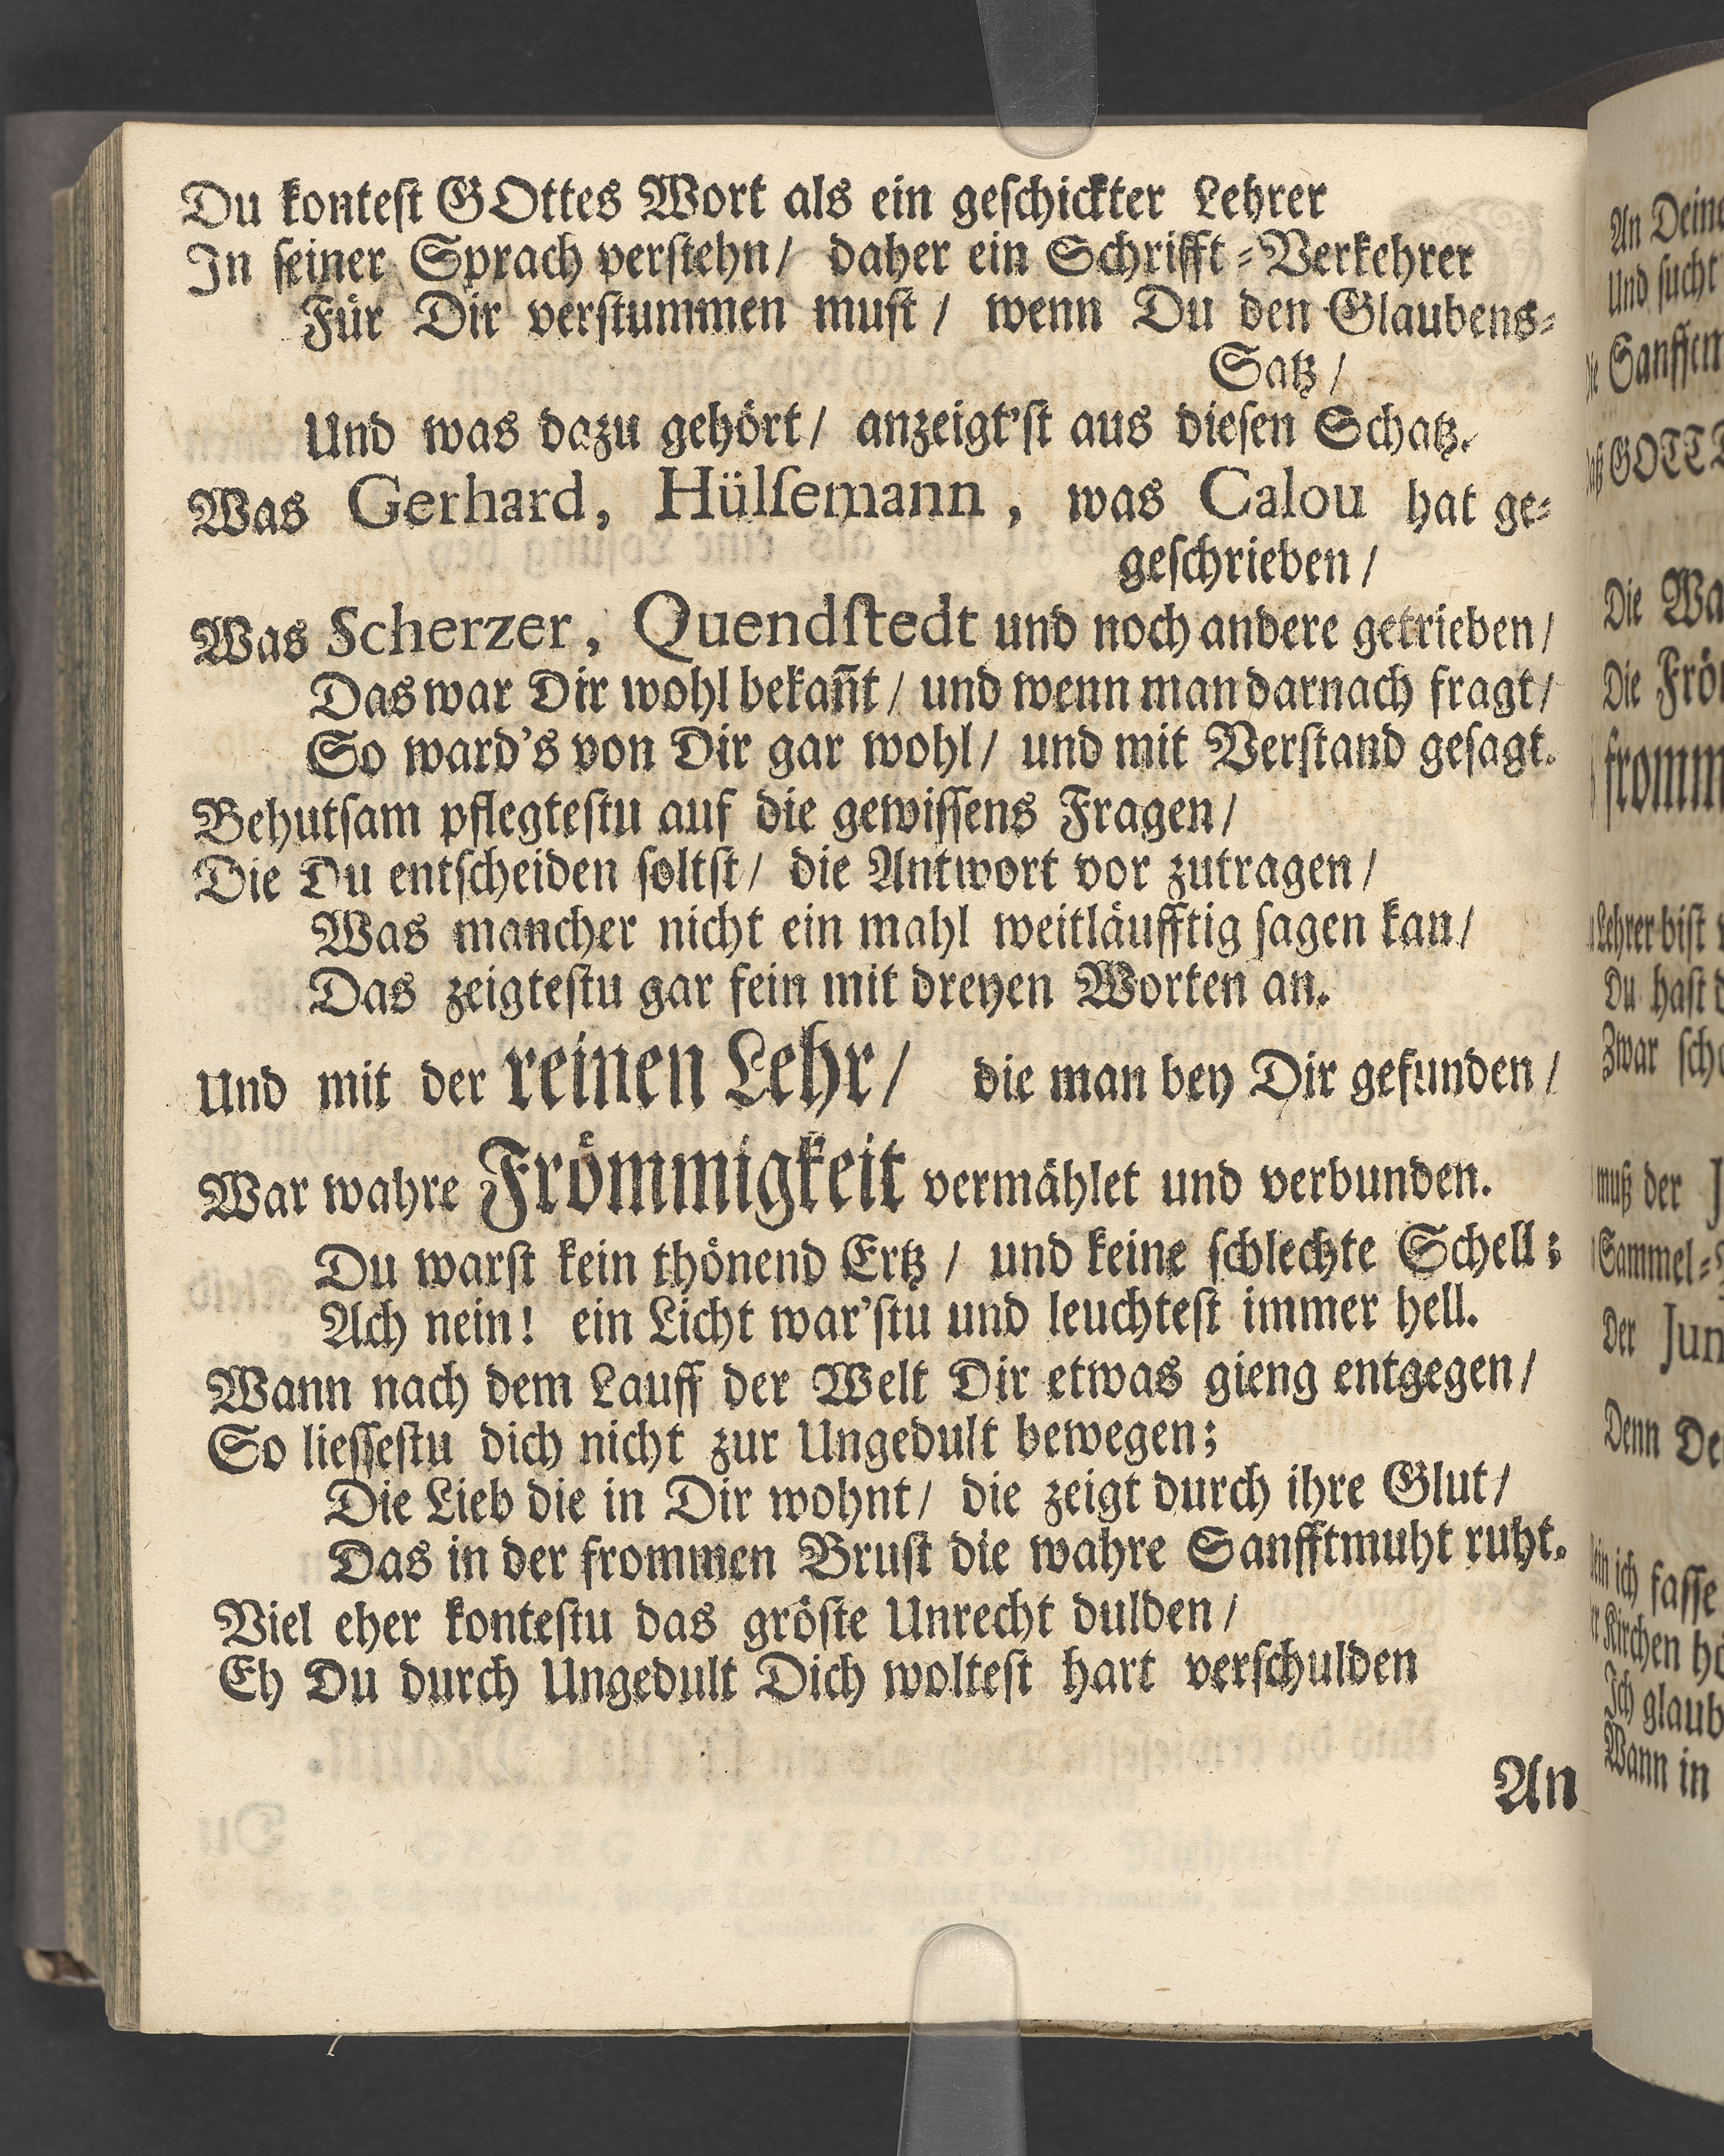 Du konteſt GOttes Wort als ein geſchickter Lehrer
In ſeiner Sprach verſtehn/ daher ein Schrifft-Verkehrer
Für Dir verſtummen muſt/ wenn Du den Glaubens-
Satz/
Und was dazu gehört/ anzeigt'ſt aus dieſen Schatz.
Was Gerhard, Hülſemann, was Calou hat ge-
geſchrieben/
Was Scherzer, Quendſtedt und noch andere getrieben/
Das war Dir wohl bekañt/ und wenn man darnach fragt/
So ward's von Dir gar wohl/ und mit Verſtand geſagt.
Behutſam pflegteſtu auf die gewiſſens Fragen/
Die Du entſcheiden ſoltſt/ die Antwort vor zutragen/
Was mancher nicht ein mahl weitläufftig ſagen kan/
Das zeigteſtu gar fein mit dreyen Worten an.
Und mit der reinen Lehr/ die man bey Dir gefunden/
War wahre Frömmigkeit vermählet und verbunden.
Du warſt kein thönend Ertz/ und keine ſchlechte Schell;
Ach nein! ein Licht war'ſtu und leuchteſt immer hell.
Wann nach dem Lauff der Welt Dir etwas gieng entgegen/
So lieſſeſtu dich nicht zur Ungedult bewegen;
Die Lieb die in Dir wohnt/ die zeigt durch ihre Glut/
Das in der frommen Bruſt die wahre Sanfftmuht ruht.
Viel eher konteſtu das gröſte Unrecht dulden/
Eh Du durch Ungedult Dich wolteſt hart verſchulden
An
An Deine
Und ſucht
Sanfftm
GOTT
Die Wa
Die Frö
fromm
Lehrer biſt
Du haſt d
Zwar ſch
muß der
Sammel-
Der Jun
Denn De
ich faſſe
Kirchen hö
Ich glaub
Wann in